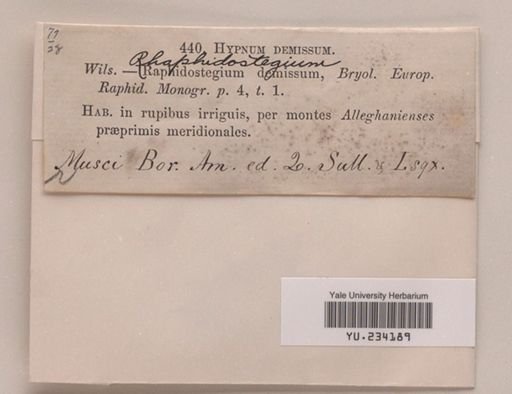 79
28
440. HYPNUM DEMISSUM.
Rhaphidostegium
Wils. — Raphidostegium demissum, Bryol. Europ.
Raphid. Monogr. p. 4, t. 1.
HAB. in rupibus irriguis, per montes Alleghanienses
præprimis meridionales.
Musci Bor. Am. ed. 2. Sull. & Lsqx.
Yale University Herbarium
YU.234189